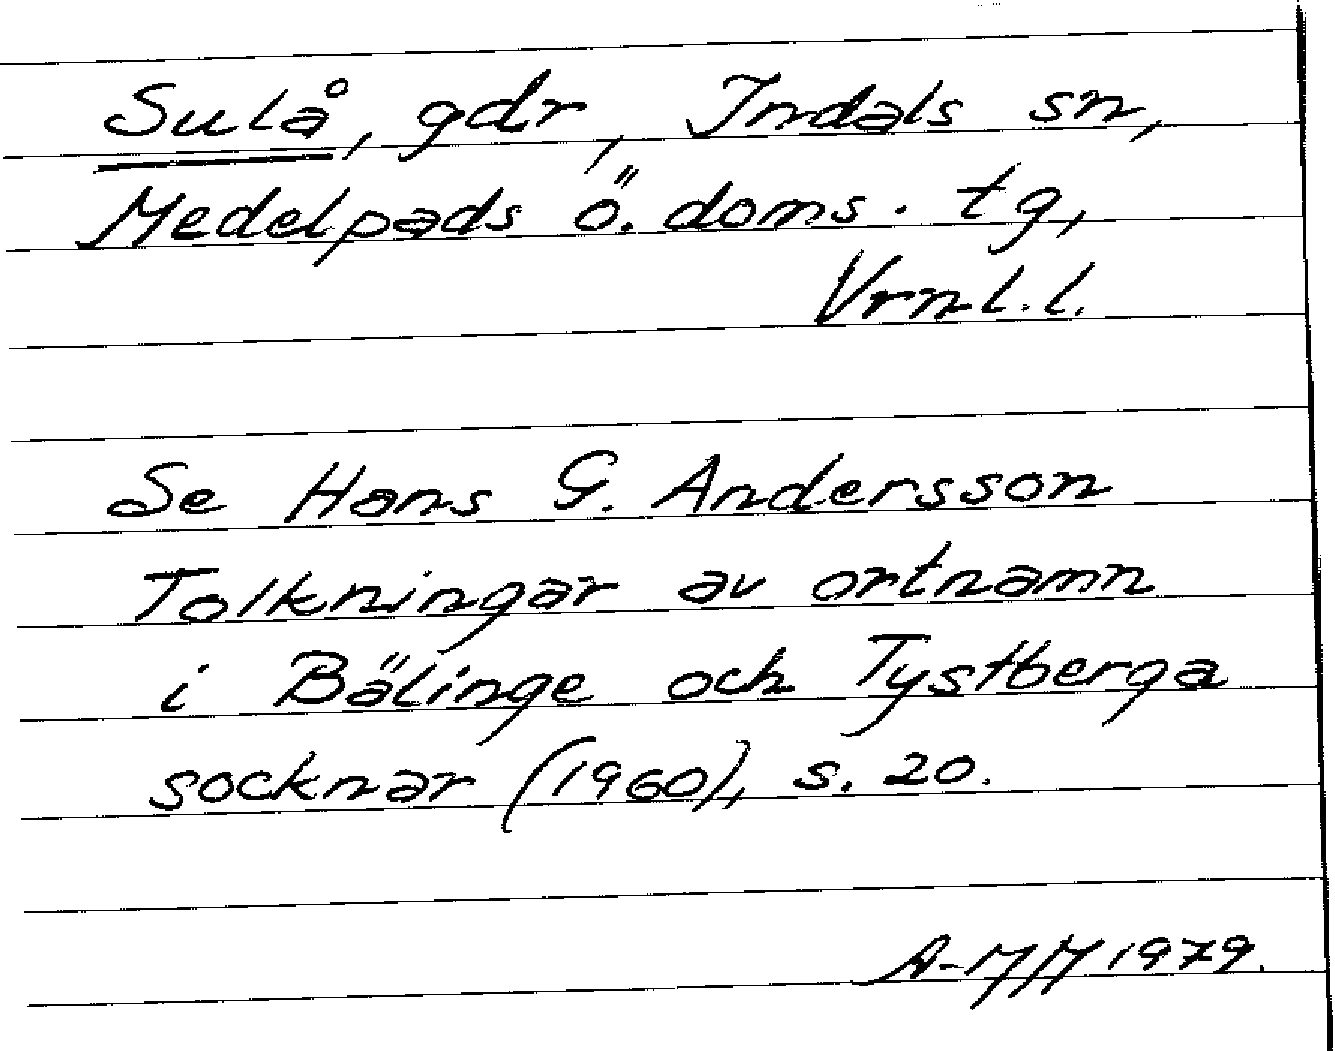 Sulå, gdr, Indals sn,
Medelpads ö. doms. tg,
Vrnl. l.
Se Hans G. Andersson
Tolkningar av ortnamn
i Bälinge och Tystberga
socknar (1960), s. 20.
A-MM 1979.